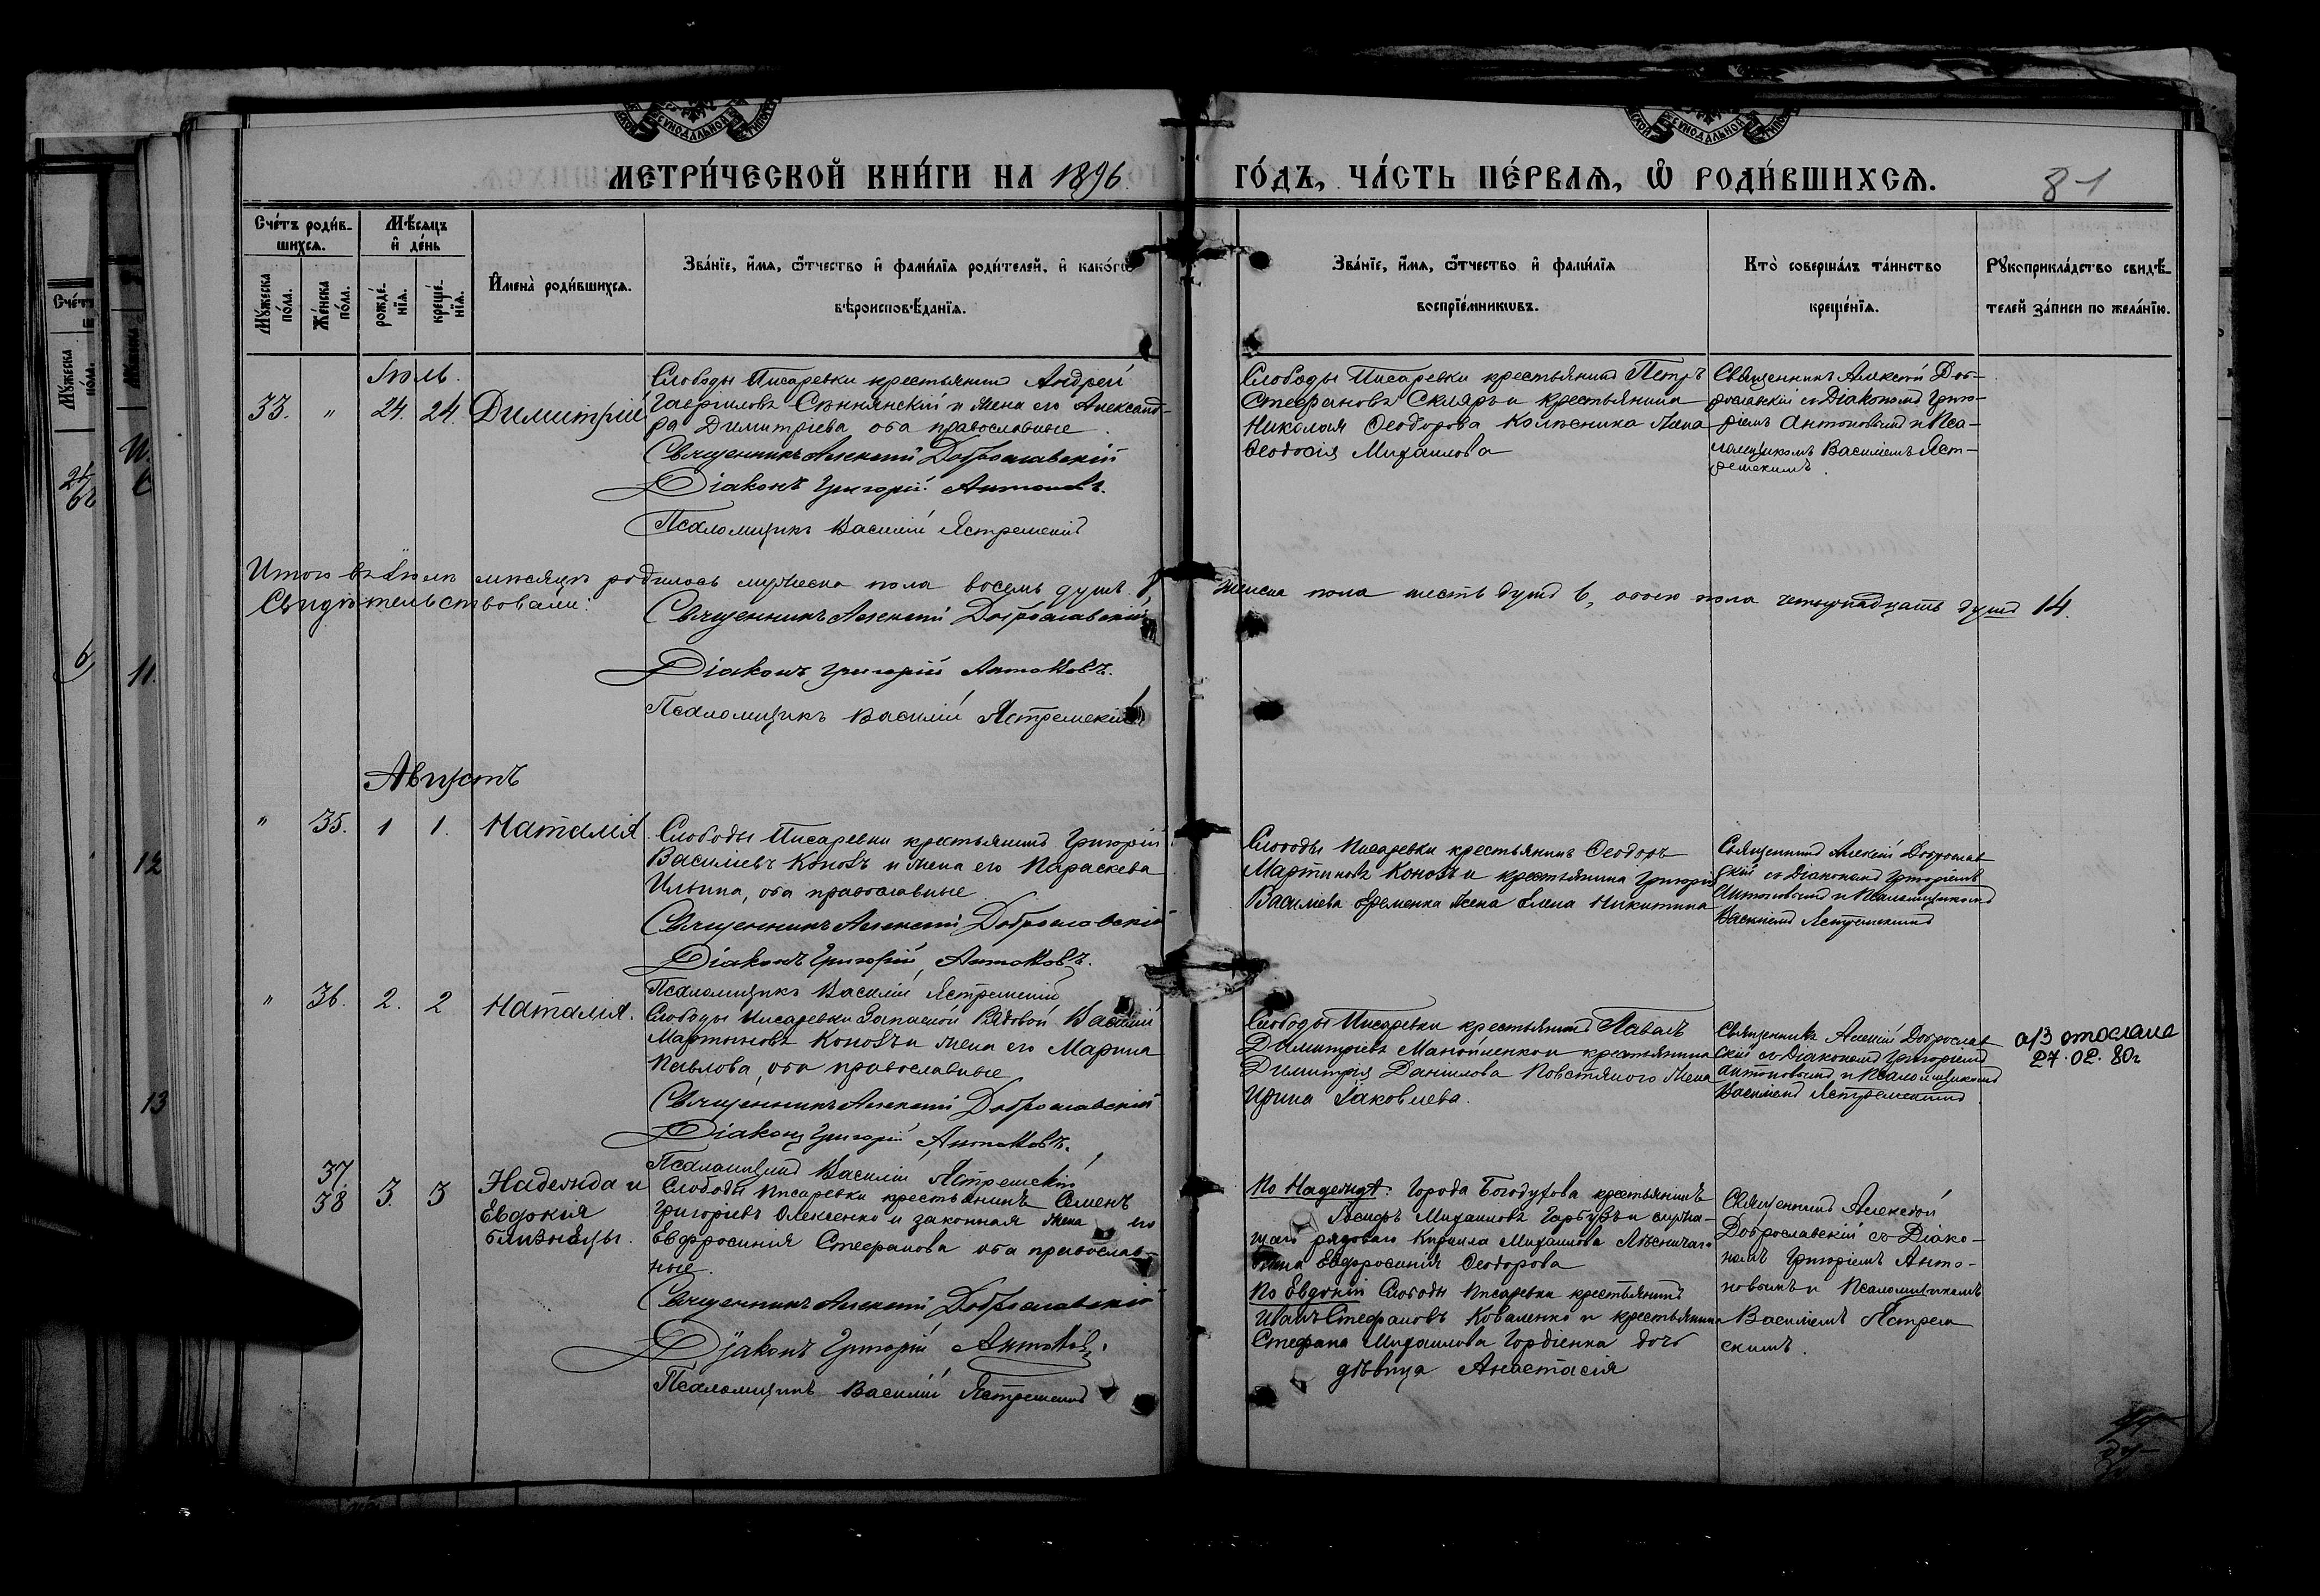 МЕТРИ́ЧЕСКОЙ КНИ́ГИ НА 1896
ГО́ДЪ, ЧА́СТЬ ПЕ́РВАѦ, Ѡ РОДИ́ВШИХСѦ.
81
Сче́тъ роди́в-
шихсѧ.
Мѣ́сѧцъ
и̂ де́нь
Мꙋ́жеска
по́ла.
Же́нска
по́ла.
рожде́-
нїѧ.
креще́-
нїѧ.
И̂мена̀ роди́вшихсѧ.
Зва́нїе, и̂́мѧ, ѻ̂́тчество и̂ фами́лїѧ роди́телей, и̂ како́гѡ
вѣроисповѣ́данїѧ.
Зва́нїе, и̂́мѧ, ѻ̂́тчество и̂ фами́лїѧ
воспрїе́мникѡвъ.
Кто̀ соверша́лъ та́инство
креще́нїѧ.
Рꙋкоприкла́дство свидѣ́-
телей за́писи по жела́нїю.
Іюль.
33. " 24. 24. Димитрій
Слободы Писаревки крестьянинъ Андрей
Гавріиловъ Сѣннянскій и жена его Александ-
ра Димитріева оба православные.
Священникъ Алексій Доброславскій
Діаконъ Григорій Антоновъ.
Псаломщикъ Василій Ястремскій
Слободы Писаревки крестьянинъ Петръ
Стефановъ Скляръ и крестьянина
Николая Ѳеодорова Колѣсника жена
Ѳеодосія Михаилова
Священникъ Алексій Доб-
рославскій съ Діакономъ Григо-
ріемъ Антоновымъ и Пса-
ломщикомъ Василіемъ Яст-
ремскимъ.
Итого въ Іюлѣ мѣсяцѣ родилось мужеска пола восемь душъ 8,
женска пола шесть душъ 6, обоего пола четырнадцать душъ 14.
Свидѣтельствовали:
Священникъ Алексій Доброславскій
Діаконъ Григорій Антоновъ.
Псаломщикъ Василій Ястремскій
Августъ
" 35. 1 1. Наталія
Слободы Писаревки крестьянинъ Григорій
Василіевъ Коновъ и жена его Параскева
Ильина, оба православные
Священникъ Алексій Доброславскій
Діаконъ Григорій Антоновъ.
Псаломщикъ Василій Ястремскій
Слободы Писаревки крестьянинъ Ѳеодоръ
Мартиновъ Коновъ и крестьянина Григорія
Василіева Ефременка жена Елена Никитина
Священникъ Алексій Доброслав
скій съ Діакономъ Григоріемъ
Антоновымъ и Псаломщикомъ
Василіемъ Ястремскимъ
" 36. 2. 2 Наталія.
Слободы Писаревки Запасной Рядовой Василій
Мартыновъ Коновъ и жена его Марина
Павлова, оба православные
Священникъ Алексій Доброславскій
Діаконъ Григорій Антоновъ.
Псаломщикъ Василій Ястремскій
Слободы Писаревки крестьянинъ Павелъ
Димитріевъ Манойленко и крестьянина
Димитрія Данилова Повстяного жена
Ирина Іаковлева.
Священникъ Алексій Доброслав
скій съ Діакономъ Григоріемъ
Антоновымъ и Псаломщикомъ
Василіемъ Ястремскимъ.
а/з отослана
27.02.80г
37.
38 3. 3 Надежда и
Евдокія
близнецы.
Слободы Писаревки крестьянинъ Семенъ
Григорьевъ Олексенко и законная жена его
Евфросинія Стефанова оба православ-
ные.
Священникъ Алексій Доброславскій
Діаконъ Григорій Антоновъ.
Псаломщикъ Василій Ястремскій
По Надеждѣ: Города Богодухова крестьянинъ
Іосифъ Михаиловъ Гарбузъ и служа-
щаго рядоваго Кирилла Михаилова Лѣсничаго
жена Евфросинія Ѳеодорова
По Евдокіи Слободы Писаревки крестьянинъ
Иванъ Стефановъ Коваленко и крестьянина
Стефана Михаилова Гордіенка дочь
дѣвица Анастасія
Священникъ Алексѣй
Доброславскій съ Діако-
номъ Григоріемъ Анто-
новымъ и Псаломщикомъ
Василіемъ Ястрем
скимъ.